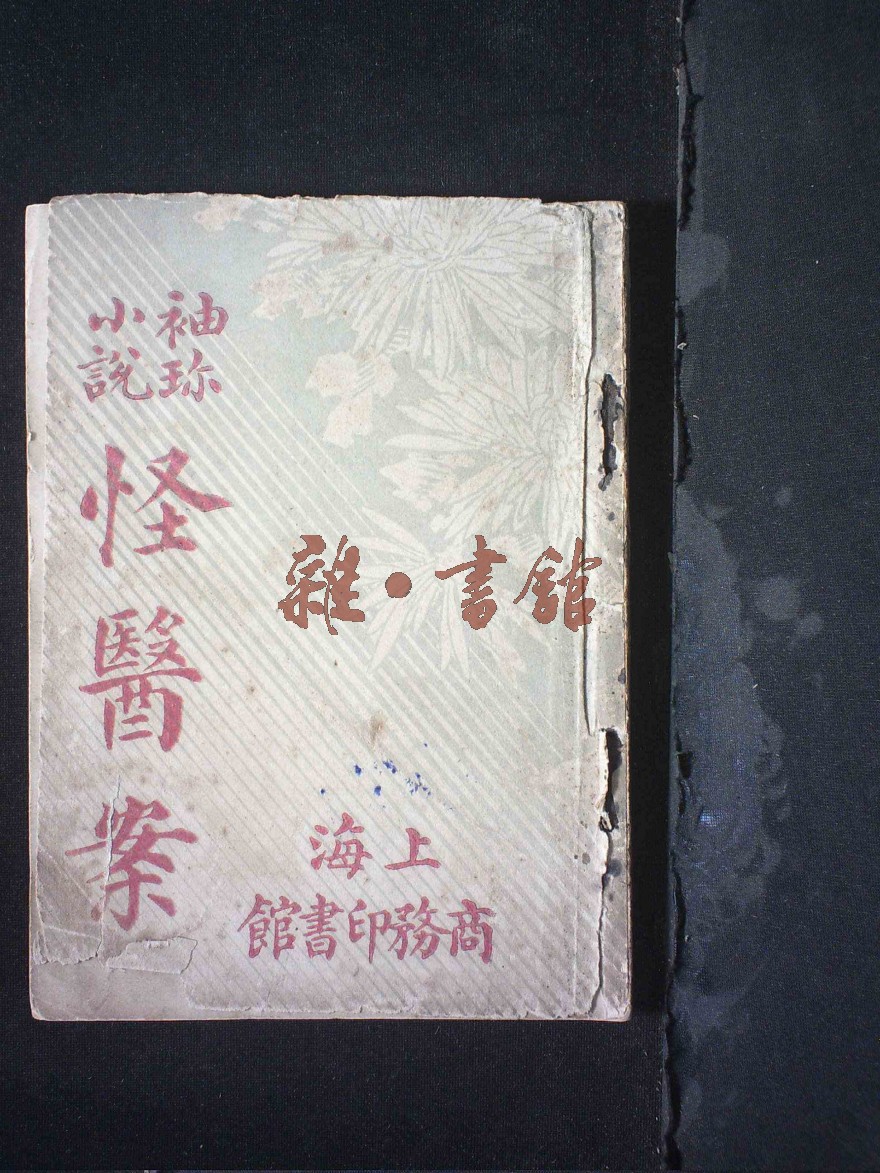 袖珍
小說
怪醫案
雜·書館
上海
商務印書館